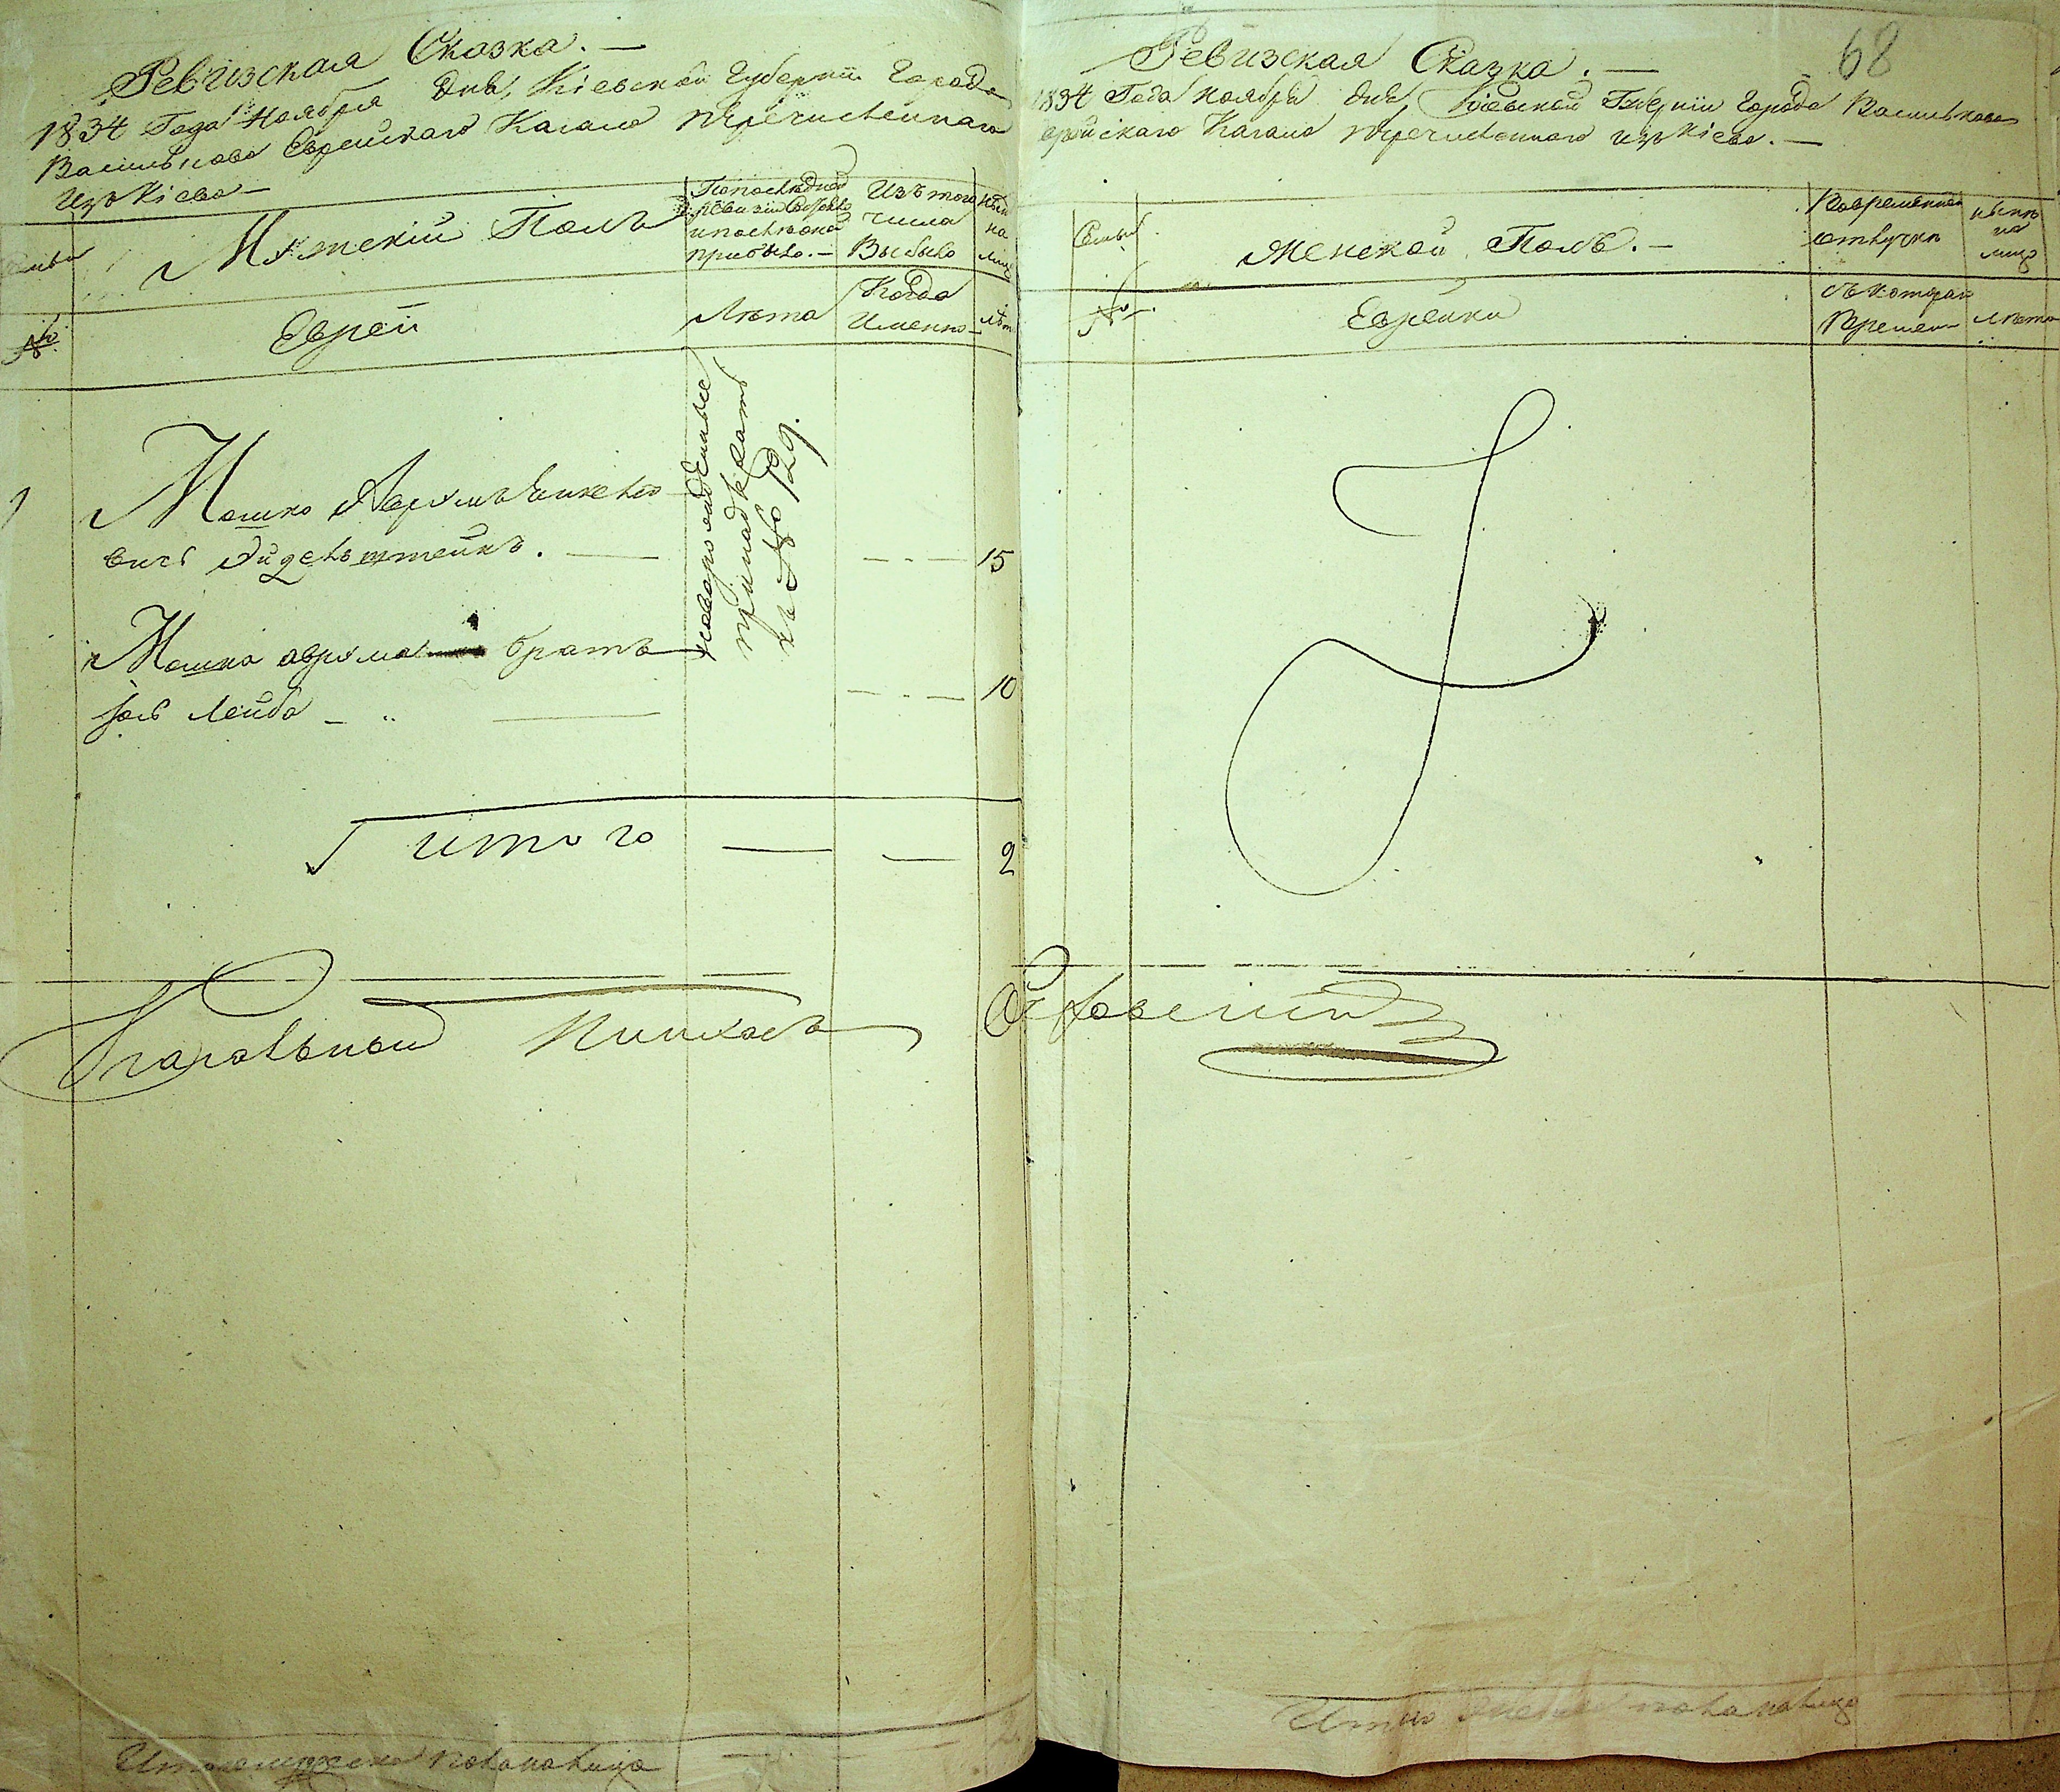 Ревизская Сказка. —
1834 Года Ноября дня, Кіевской Губерніи Города
Василькова Еврейскаго Кагала перечисленнаго
изъ Кіева —
Семьи
Мужескій Полъ
По последней
ревизіи состояло
и после оной
прибыло. —
Изъ того
числа
выбыло
ныне
на
лицо
№
Еврей
Лета
Когда
Именно —
лета
1
Мошко Аврумъ
вичъ Эйдельштейнъ. — 15
Мошка аврума братъ
Лейба — 10
новорожденные
принадлежатъ
къ № 129.
итого — — 2
Кагальный Пинхасъ
Итого мужеска пола налицо — 2
68
Ревизская Сказка. —
1834 Года ноября дня, Кіевской Губерніи Города Василькова
еврейскаго Кагала перечисленнаго изъ Кіева. —
Семьи
Женской Полъ. —
Во временной
отлучке
ныне
на
лицо
№
Еврейки
Съ котораго
Времени
лета
Итого женска пола налицо